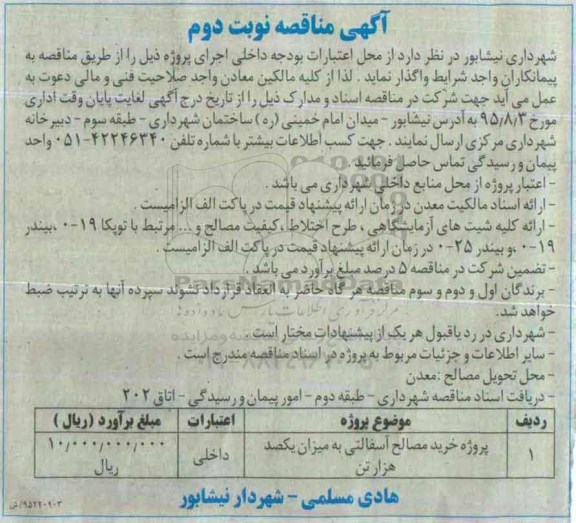 آگهی مناقصه نوبت دوم
شهرداری نیشابور در نظر دارد از محل اعتبارات بودجه داخلی اجرای پروژه ذیل را از طریق مناقصه به
پیمانکاران واجد شرایط واگذار نماید . لذا از کلیه مالکین معادن واجد صلاحیت فنی و مالی دعوت به
عمل می آید جهت شرکت در مناقصه اسناد و مدارک ذیل را از تاریخ درج آگهی لغایت پایان وقت اداری
مورخ ۹۵/۸/۳ به آدرس نیشابور - میدان امام خمینی (ره) ساختمان شهرداری - طبقه سوم - دبیرخانه
شهرداری مرکزی ارسال نمایند . جهت کسب اطلاعات بیشتر با شماره تلفن ۴۲۲۴۶۳۴۰-۰۵۱ واحد
پیمان و رسیدگی تماس حاصل فرمائید .
- اعتبار پروژه از محل منابع داخلی شهرداری می باشد .
- ارائه اسناد مالکیت معدن در زمان ارائه پیشنهاد قیمت در پاکت الف الزامیست .
- ارائه کلیه شیت های آزمایشگاهی ، طرح اختلاط ،کیفیت مصالح و ... مرتبط با توپکا ۱۹-۰ ،بیندر
۱۹-۰ ،و بیندر ۲۵-۰ در زمان ارائه پیشنهاد قیمت در پاکت الف الزامیست .
- تضمین شرکت در مناقصه ۵ درصد مبلغ برآورد می باشد .
- برندگان اول و دوم و سوم مناقصه هر گاه حاضر به انعقاد قرارداد نشوند سپرده آنها به ترتیب ضبط
خواهد شد.
- شهرداری در رد یاقبول هر یک از پیشنهادات مختار است .
- سایر اطلاعات و جزئیات مربوط به پروژه در اسناد مناقصه مندرج است .
- محل تحویل مصالح :معدن
- دریافت اسناد مناقصه شهرداری - طبقه دوم - امور پیمان و رسیدگی - اتاق ۲۰۲
ردیف موضوع پروژه اعتبارات مبلغ برآورد (ریال )
۱ پروژه خرید مصالح آسفالتی به میزان یکصد هزار تن داخلی ۱۰/۰۰۰/۰۰۰/۰۰۰ ریال
هادی مسلمی - شهردار نیشابور
۹۵۲۲۰۹۰۳/ش